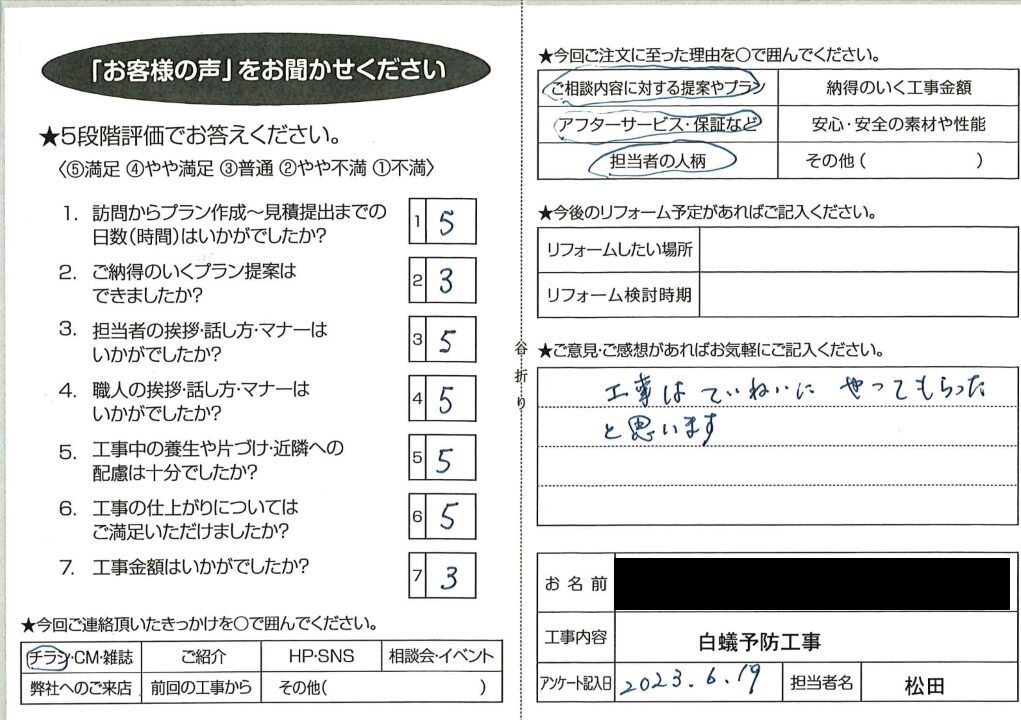 「お客様の声」をお聞かせください
★5段階評価でお答えください。
〈⑤満足 ④やや満足 ③普通 ②やや不満 ①不満〉
1. 訪問からプラン作成〜見積提出までの
日数(時間)はいかがでしたか?
1 5
2. ご納得のいくプラン提案は
できましたか?
2 3
3. 担当者の挨拶・話し方・マナーは
いかがでしたか?
3 5
4. 職人の挨拶・話し方・マナーは
いかがでしたか?
4 5
5. 工事中の養生や片づけ・近隣への
配慮は十分でしたか?
5 5
6. 工事の仕上がりについては
ご満足いただけましたか?
6 5
7. 工事金額はいかがでしたか?
7 3
★今回ご連絡頂いたきっかけを○で囲んでください。
チラシ・CM・雑誌 ご紹介 HP・SNS 相談会・イベント
弊社へのご来店 前回の工事から その他( )
谷折り
★今回ご注文に至った理由を○で囲んでください。
ご相談内容に対する提案やプラン 納得のいく工事金額
アフターサービス・保証など 安心・安全の素材や性能
担当者の人柄 その他( )
★今後のリフォーム予定があればご記入ください。
リフォームしたい場所
リフォーム検討時期
★ご意見・ご感想があればお気軽にご記入ください。
工事はていねいに やってもらった
と思います
お名前
工事内容 白蟻予防工事
アンケート記入日 2023.6.19 担当者名 松田